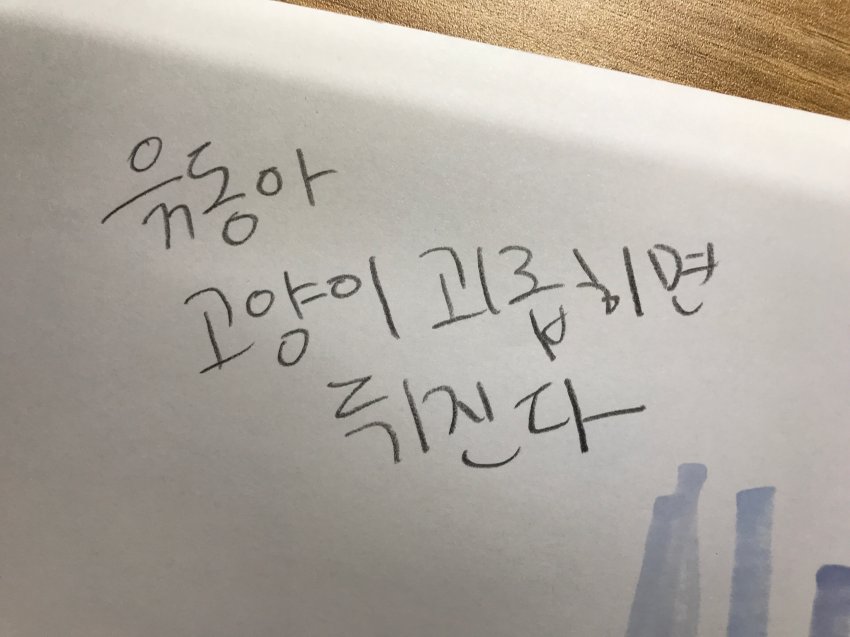 윦동아
고양이 괴롭히면
뒤진다